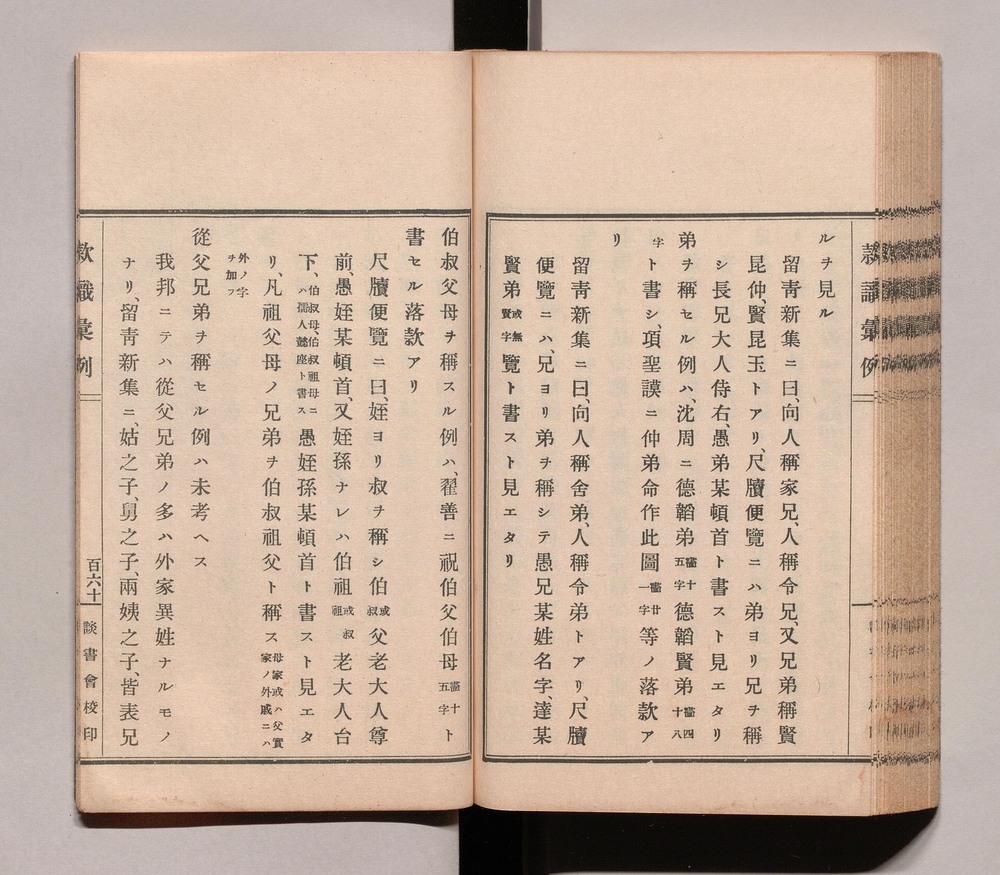 ルヲ見ル
留靑新集ニ曰、向人稱家兄、人稱令兄、又兄弟稱賢
昆仲、賢昆玉トアリ、尺牘便覽ニハ弟ヨリ兄ヲ稱
シ長兄大人侍右、愚弟某頓首ト書スト見エタリ
弟ヲ稱セル例ハ、沈周ニ德韜弟五字 德韜賢弟十八
字ト書シ、項聖謨ニ仲弟命作此圖一字 等ノ落款ア
リ
留靑新集ニ曰、向人稱舍弟、人稱令弟トアリ、尺牘
便覽ニハ、兄ヨリ弟ヲ稱シテ愚兄某姓名字、達某
賢弟或無賢字覽ト書スト見エタリ
款識彙例
伯叔父母ヲ稱スル例ハ、翟善ニ祝伯父伯母五字ト
書セル落款アリ
尺牘便覽ニ曰、姪ヨリ叔ヲ稱シ伯或叔父老大人尊
前、愚姪某頓首、又姪孫ナレハ伯祖或叔祖老大人台
下、伯叔母、伯叔祖母ニハ孺人懿座ト書ス愚姪孫某頓首ト書スト見エタ
リ、凡祖父母ノ兄弟ヲ伯叔祖父ト稱ス母家或ハ父實家ノ外戚ニハ
外ノ字ヲ加フ
從父兄弟ヲ稱セル例ハ未考ヘス
我邦ニテハ從父兄弟ノ多ハ外家異姓ナルモノ
ナリ、留靑新集ニ、姑之子、舅之子、兩姨之子、皆表兄
款識彙例
百六十
談書會校印